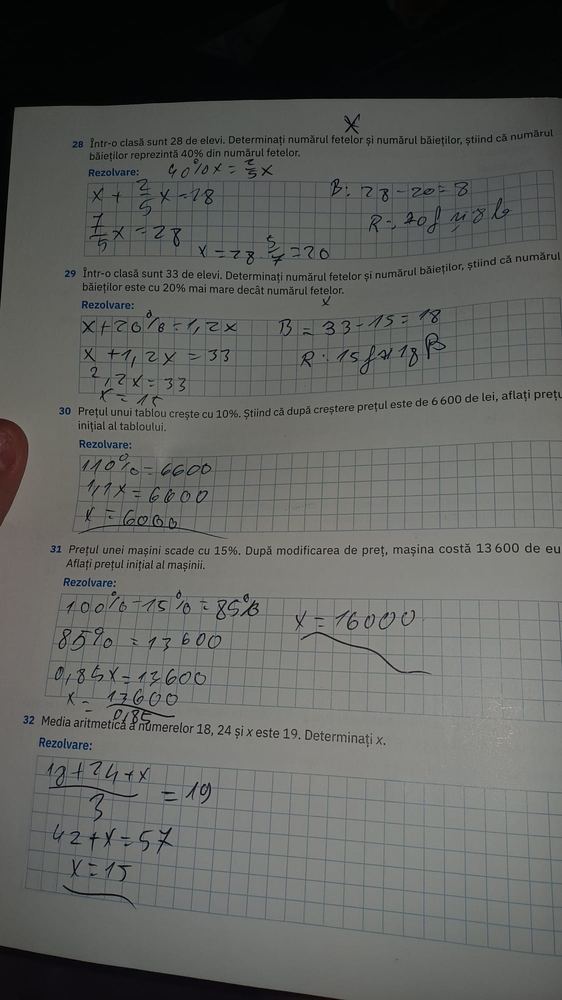 X
28 Într-o clasă sunt 28 de elevi. Determinați numărul fetelor și numărul băieților, știind că numărul
băieților reprezintă 40% din numărul fetelor.
Rezolvare: 40%x = 2/5x
x + 2/5x = 28 B: 28 - 20 = 8
7/5x = 28 R: 20f și 8b
x = 28 · 5/7 = 20
29 Într-o clasă sunt 33 de elevi. Determinați numărul fetelor și numărul băieților, știind că numărul
băieților este cu 20% mai mare decât numărul fetelor.
x
Rezolvare:
x + 20% = 1,2x B = 33 - 15 = 18
x + 1,2x = 33 R: 15f și 18B
2,2x = 33
x = 15
30 Prețul unui tablou crește cu 10%. Știind că după creștere prețul este de 6 600 de lei, aflați
inițial al tabloului.
Rezolvare:
110% = 6600
1,1x = 6600
x = 6000
31 Prețul unei mașini scade cu 15%. După modificarea de preț, mașina costă 13 600 de
Aflați prețul inițial al mașinii.
Rezolvare:
100% - 15% = 85% x = 16000
85% = 13600
0,85x = 13600
x = 13600/0,85
32 Media aritmetică a numerelor 18, 24 și x este 19. Determinați x.
Rezolvare:
18+24+x/3 = 19
42+x = 57
x = 15